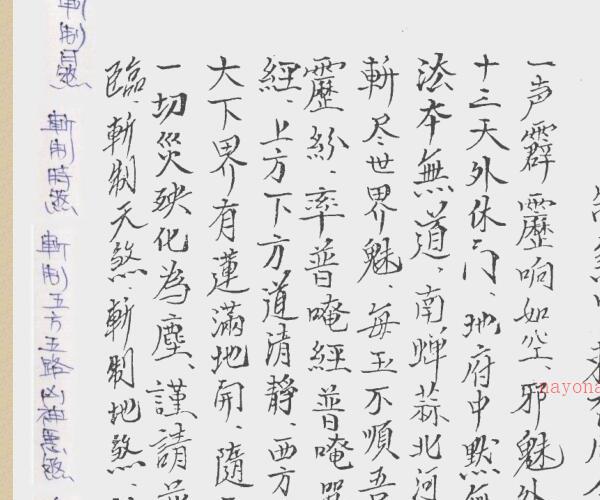 一声霹靂响如空、邪魅外
十三天外休门、地府中黙
法本無道、南蝉蒜北河
斬尽世界魅、每玉不順吾
靂紛、率普唵經普唵
經、上方下方道清静、西方
大下界有蓮滿地開、隨
一切災殃化為塵、謹請
臨、斬制天煞、斬制地煞、
斬制日煞
斬制時煞
斬制五方五路凶神惡煞
nayona